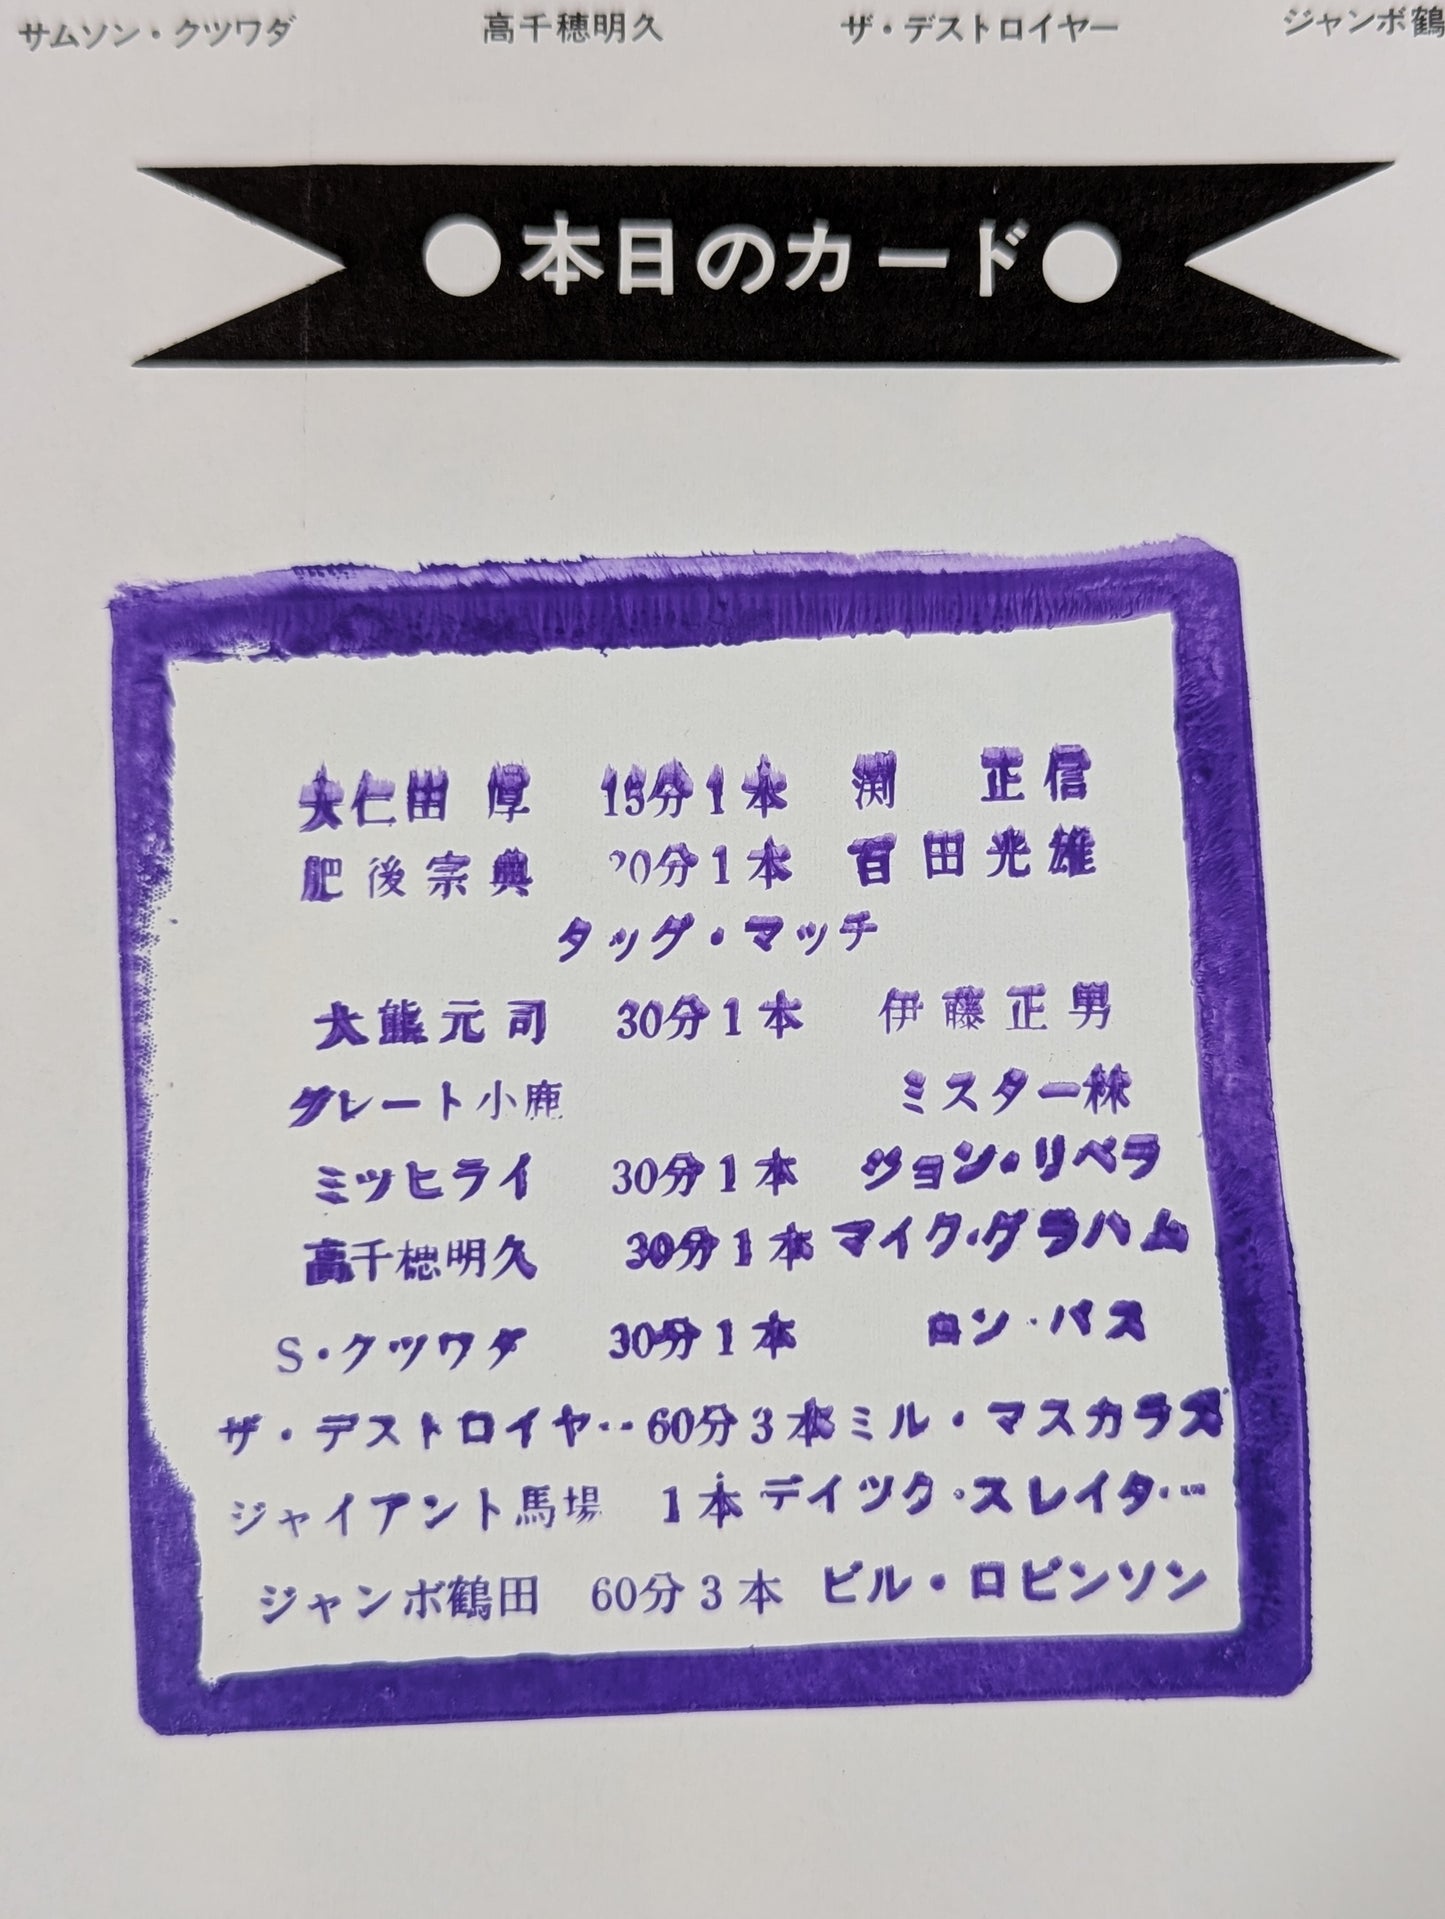 サムソン・クツワダ 高千穂明久 ザ・デストロイヤー ジャンボ鶴
●本日のカード●
大仁田 厚 15分1本 渕 正信
肥後宗典 20分1本 百田光雄
タッグ・マッチ
大熊元司 30分1本 伊藤正男
グレート小鹿 ミスター林
ミツヒライ 30分1本 ジョン・リベラ
高千穂明久 30分1本 マイク・グラハム
S・クツワダ 30分1本 ロン・バス
ザ・デストロイヤー 60分3本 ミル・マスカラス
ジャイアント馬場 1本 デイツク・スレイター
ジャンボ鶴田 60分3本 ビル・ロビンソン